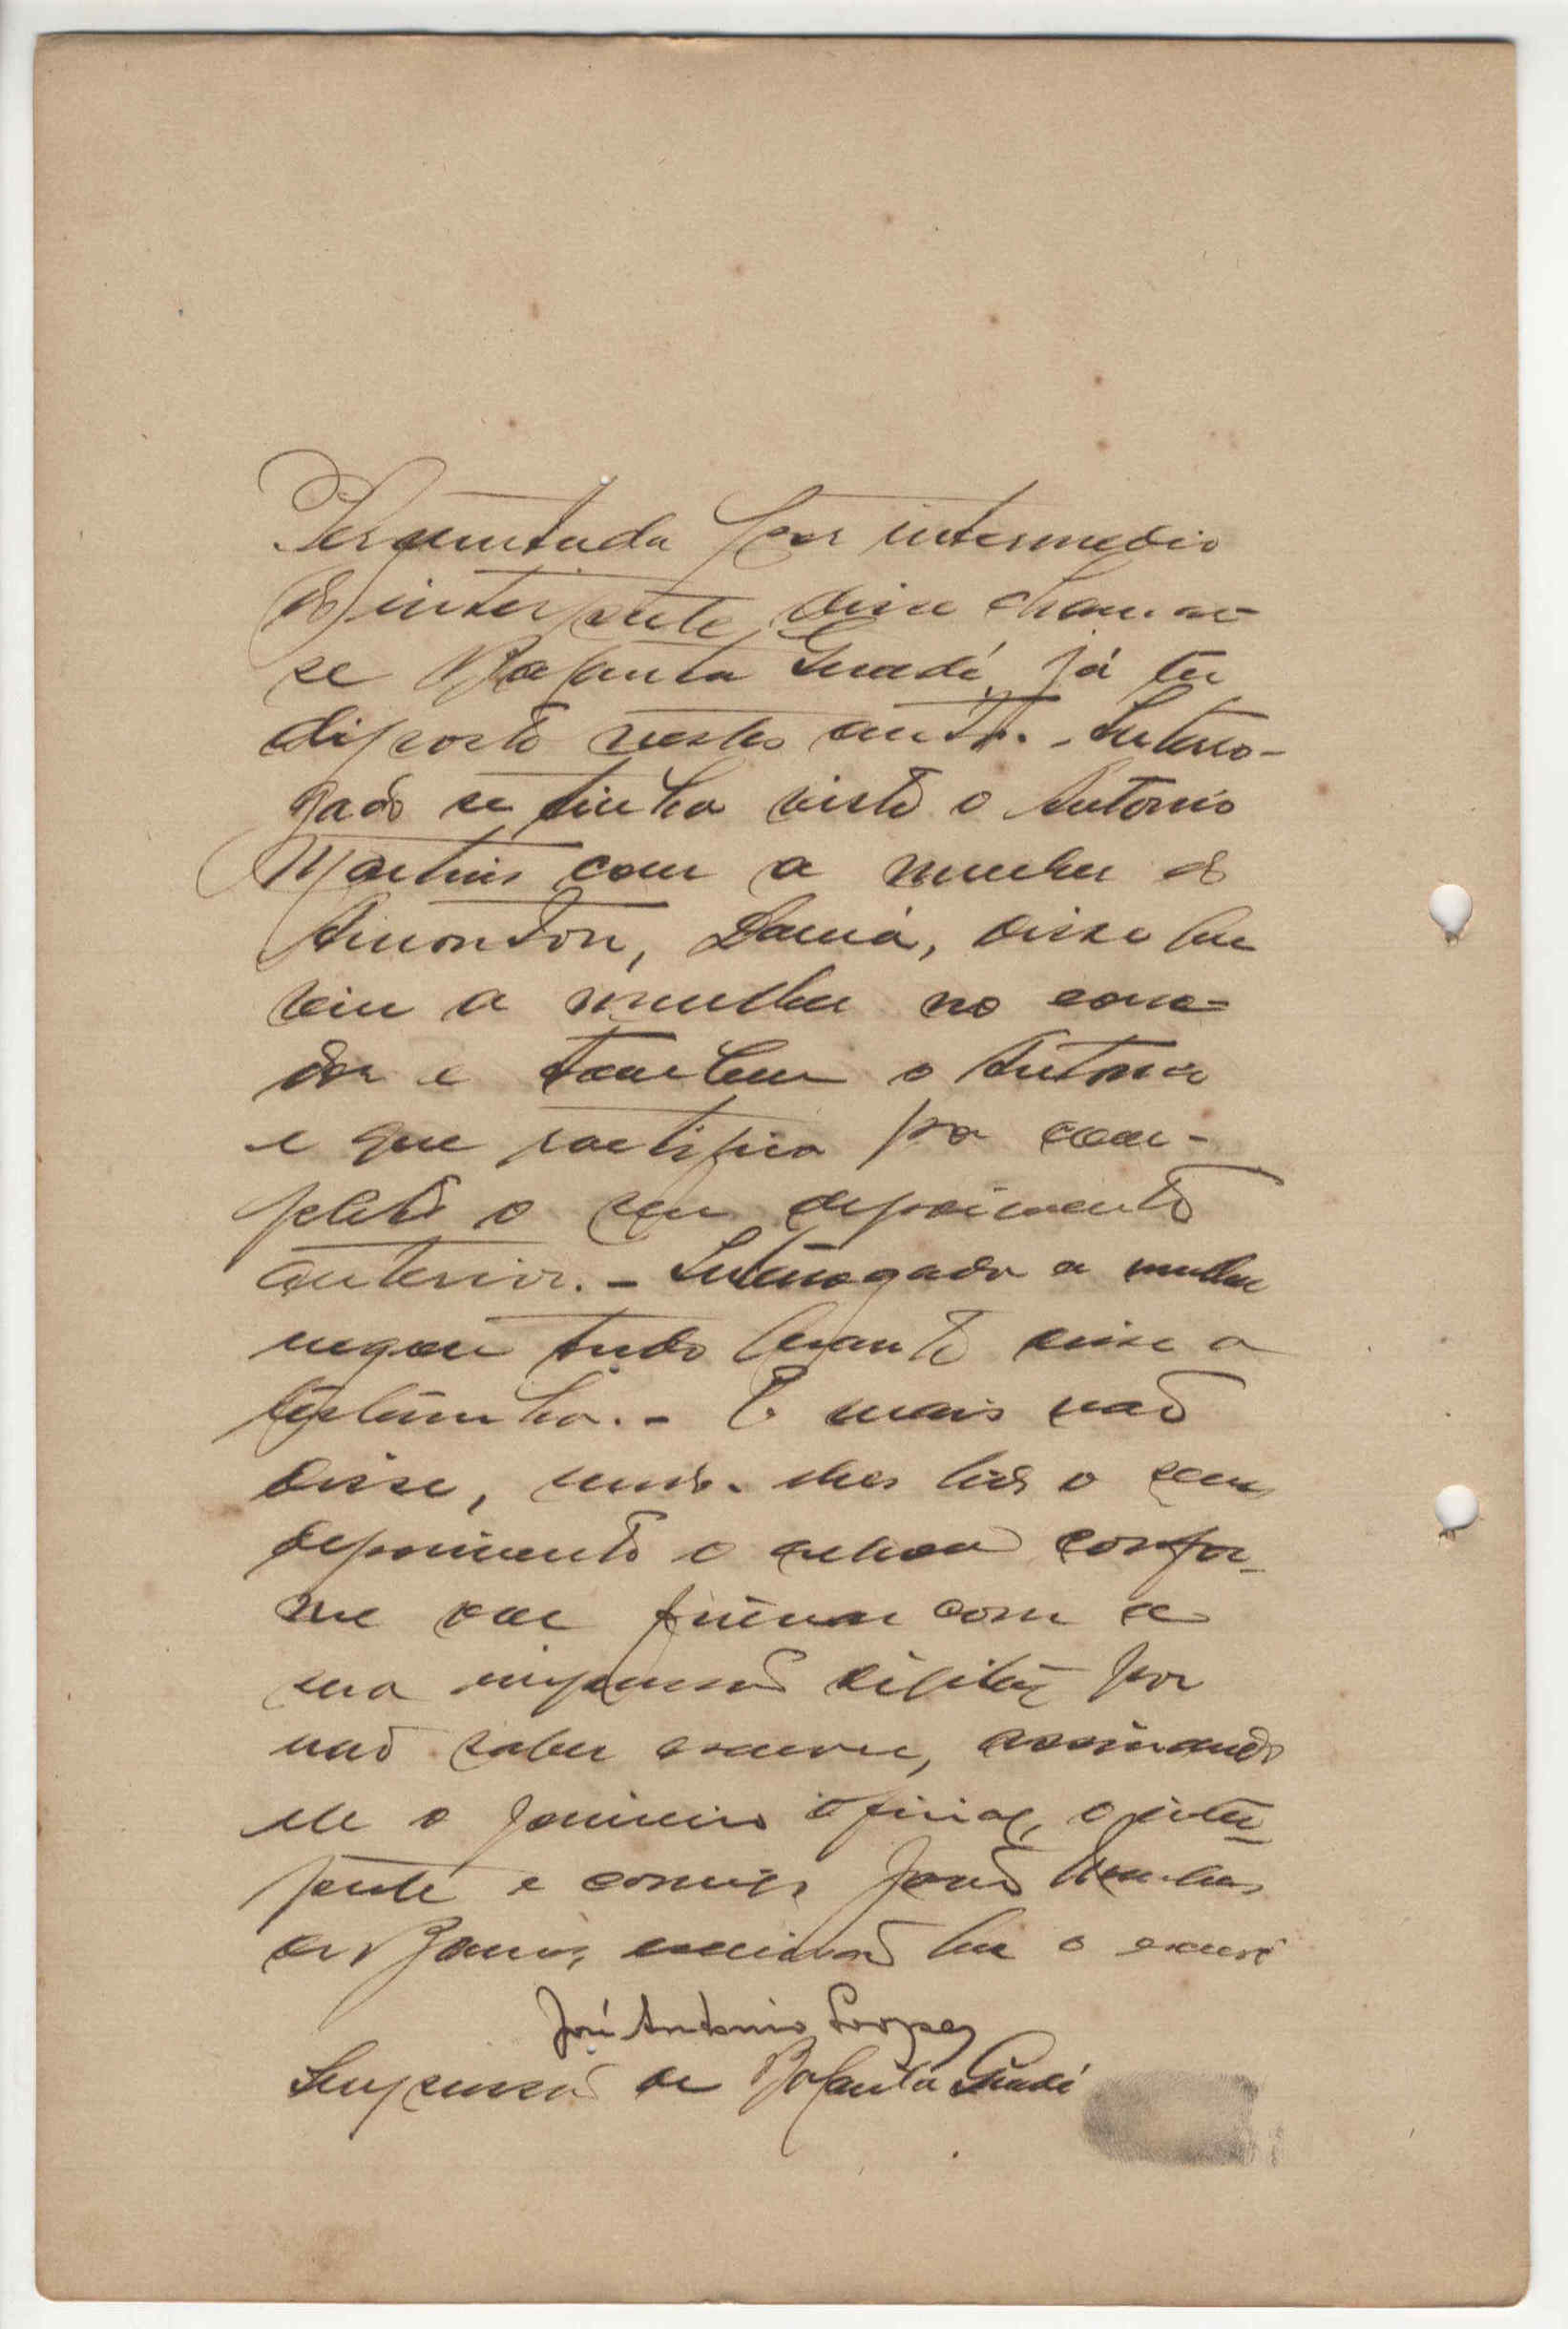 Perguntada por intermedio
do interprete, disse chamar-
se Bafanta Guadé, já ter
disposto nestes autos. - Interro-
gado se tinha visto o Antonio
Martins com a mulher do
disse que
viu a mulher no corre-
dor e tambem o Antonio
e que ratifica por com-
pleto o seu depoimento
anterior. - Interrogada a mulher
negou tudo quanto disse a
testemunha. - E mais não
disse, sendo-lhes lido o seu
depoimento o achou confor-
me vae firmar com a
sua impressão digital por
não saber escrever, assinando
ele o primeiro oficial, o inter-
prete e comigo João
de Barros, escrivão que o escrevi
José Antonio Lopes
Impressão de Bafanta Guadé